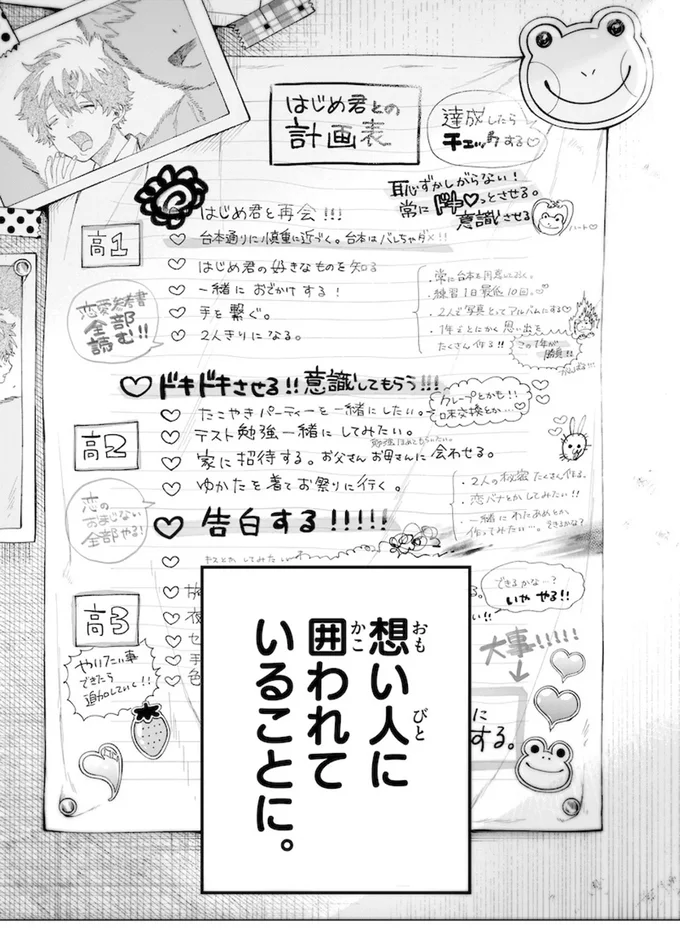 はじめ君との
計画表
達成したら
チェックする♡
恥ずかしがらない！
常にドキ♡っとさせる。
意識させる
ハート♡
高1
はじめ君と再会!!!
♡ 台本通りに慎重に近づく。台本はバレちゃダメ!!
♡ はじめ君の好きなものを知る
♡ 一緒におでかけする！
♡ 手を繋ぐ。
♡ 2人きりになる。
恋愛参考書
全部
読む!!
・常に台本を用意しておく。
・練習1日最低10回。
・2人で写真とってアルバムにする♡
・1年生とにかく思い出を
たくさん作る!!
この1年が
勝負!!
♡ ドキドキさせる!!意識してもらう!!!
高2
♡ たこやきパーティーを一緒にしたい。
クレープとかも!!
一口交換とか…
♡ テスト勉強一緒にしてみたい。
♡ 家に招待する。お父さんお母さんに会わせる。
♡ ゆかたを着てお祭りに行く。
♡ 告白する!!!!!
恋の
おまじない
全部やる!
・2人の秘密たくさん作る。
・恋バナとかしてみたい!!
・一緒にわたあめとか
作ってみたい…。できるかな？
♡ キスとかしてみたい
高3
できるかな…？
いや やる!!
やりたい事
できたら
追加していく!!
大事!!!!!
に
する。
想い人に
囲われて
いることに。